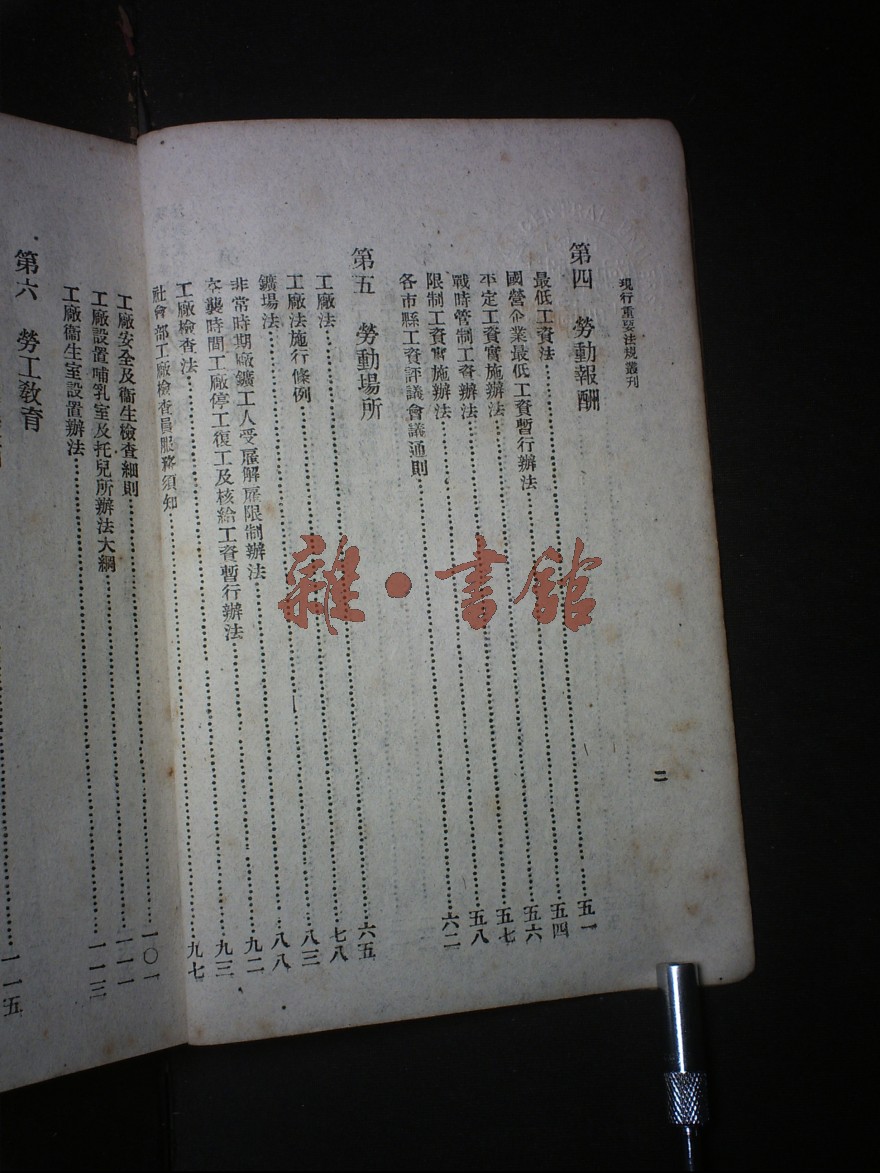 現行重要法規叢刊
二
第四 勞動報酬
最低工資法……五一
國營企業最低工資暫行辦法……五四
平定工資實施辦法……五六
戰時管制工資辦法……五七
限制工資實施辦法……五八
各市縣工資評議會議通則……六二
第五 勞動場所
工廠法……六五
工廠法施行條例……七八
鑛場法……八三
非常時期廠鑛工人受雇解雇限制辦法……八八
空襲時間工廠停工復工及核給工資暫行辦法……九二
工廠檢查法……九三
社會部工廠檢查員服務須知……九七
工廠安全及衞生檢查細則……一〇一
工廠設置哺乳室及托兒所辦法大綱……一一一
工廠衞生室設置辦法……一一三
第六 勞工教育
……一一五
雜·書館